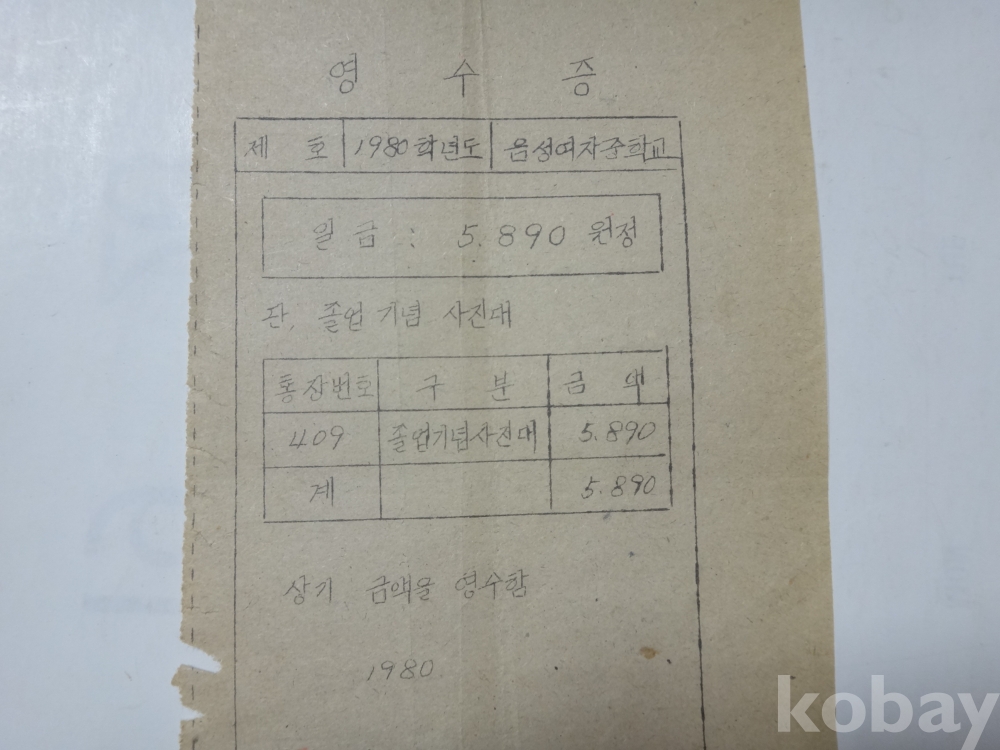 영 수 증
제 호 1980학년도 음성여자중학교
일 금 : 5.890 원정
관. 졸업 기념 사진대
통장번호 구 분 금 액
409 졸업기념사진대 5.890
계 5.890
상기 금액을 영수함
1980
kobay